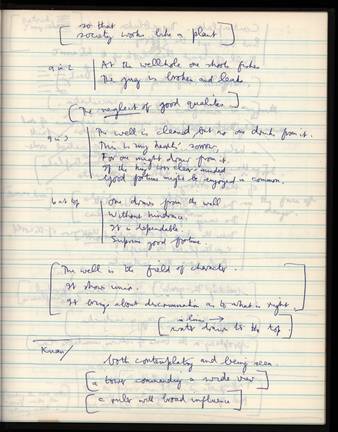 [so that
society works like a plant]
9 in 2 | At the wellhole one shoots fishes
The jug is broken and leaks
[The neglect of good qualities]
9 in 3 | The well is cleaned, but no one drinks from it.
This is my heart's sorrow,
For one might draw from it.
If the king were clear-minded
Good fortune might be enjoyed in common.
6 at top | One draws from the well
Without hindrance.
It is dependable.
Supreme good fortune.
[The well is the field of character.
It shows union.
It brings about discrimination as to what is right]
[is low →
water drawn to the top.]
Kuan/
both contemplating and being seen.
[a tower commanding a wide view]
[a ruler with broad influence]